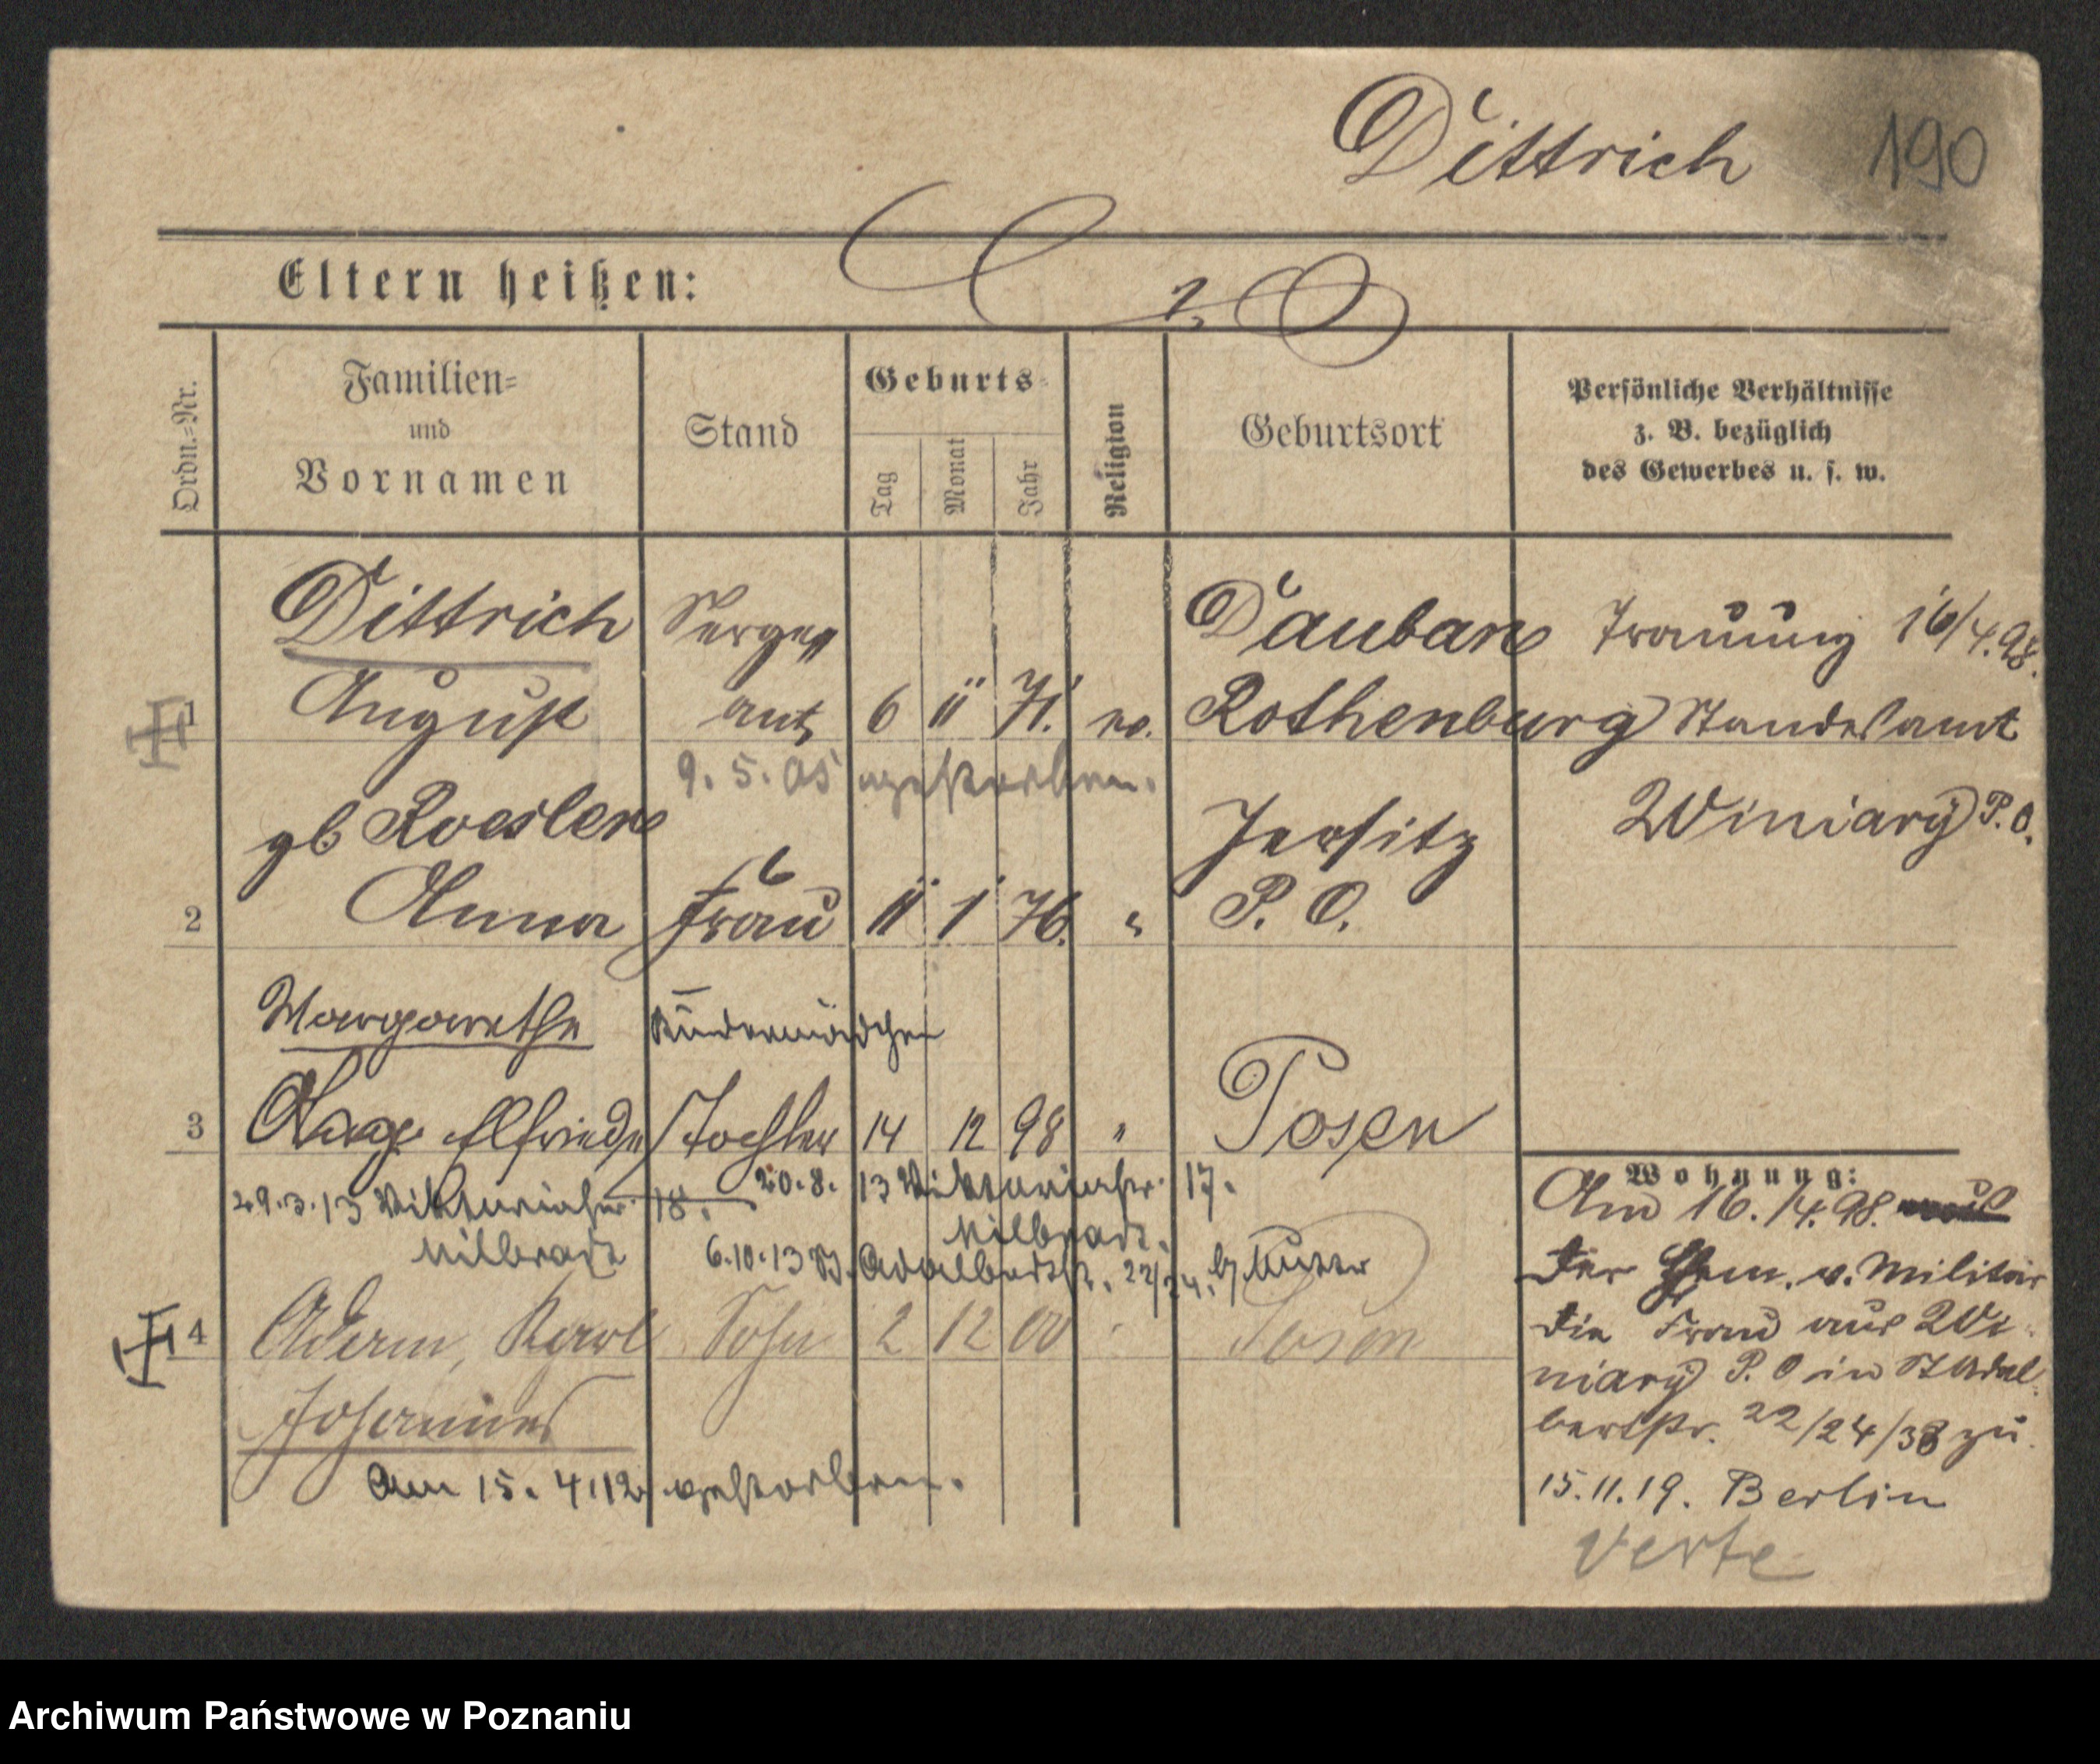 Dittrich 190
Eltern heißen:
Ordn.-Nr.
Familien-
und
Vornamen
Stand
Geburts-
Tag
Monat
Jahr
Religion
Geburtsort
Persönliche Verhältnisse
z. B. bezüglich
des Gewerbes u. s. w.
Dittrich Serge Dauban Trauung 16/4.98.
1 August ant 6 11 71. ev. Rothenburg Standesamt
9. 5. 05 gestorben.
gb Roesler Jersitz Winiary P. O.
2 Anna Frau 11 1 76. " P. O.
Margarethe Kindermädchen
3 Elfriede Tochter 14 12 98 " Posen
29.3.13 Viktoriastr. 18. 20.8.13 Viktoriastr. 17.
Milbradt Milbradt.
6.10.13 Adalbertstr. 22/24. b/ Mutter
4 Adam, Karl Sohn 2 12 00 Posen
Johannes
am 15. 4.12 gestorben.
Wohnung:
Am 16./4.98.
der Ehem. v. Militär
die Frau aus Wi-
niary P. O in St Adal-
bertstr. 22/24/38 zu.
15.11.19. Berlin
verte
Archiwum Państwowe w Poznaniu